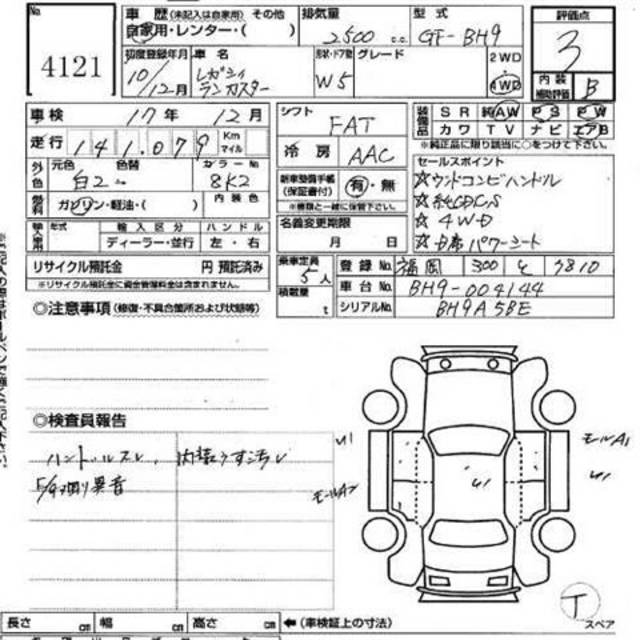 No
4121
車 歴 (未記入は自家用) その他
自家用・レンター・( )
排気量
2500 c.c.
型 式
GF-BH9
評価点
3
内装
補助評価
B
初度登録年月
10/12月
車 名
レガシィ
ランカスター
形状・ドア数
W5
グレード
2WD
4WD
車検 17年 12月
走行 141.079 Km
マイル
外
色
元色
白2
色替
カラー No
8K2
燃料
ガソリン・軽油・( )
内装色
輸入車
年式
輸入区分
ディーラー・並行
ハンドル
左・右
リサイクル預託金 円 預託済み
※リサイクル預託金に資金管理料金は含まれません。
シフト
FAT
冷 房
AAC
新車整備手帳
(保証書付)
有・無
※書類と一緒に保管下さい。
名義変更期限
月 日
乗車定員
5人
積載量
t
装備品
SR 純AW PS PW
カワ TV ナビ エアB
※純正品に限り該当に○をつけて下さい。
セールスポイント
☆ウッドコンビハンドル
☆純CDC/S
☆4WD
☆由席パワーシート
登録 No. 福岡 300 と 7810
車台 No. BH9-004144
シリアルNo. BH9A5BE
◎注意事項(修復・不具合箇所および状態等)
◎検査員報告
ハンドルスレ、内装うすごれ
モールA1
モールA2
T
スペア
長さ cm 幅 cm 高さ cm ←(車検証上の寸法)